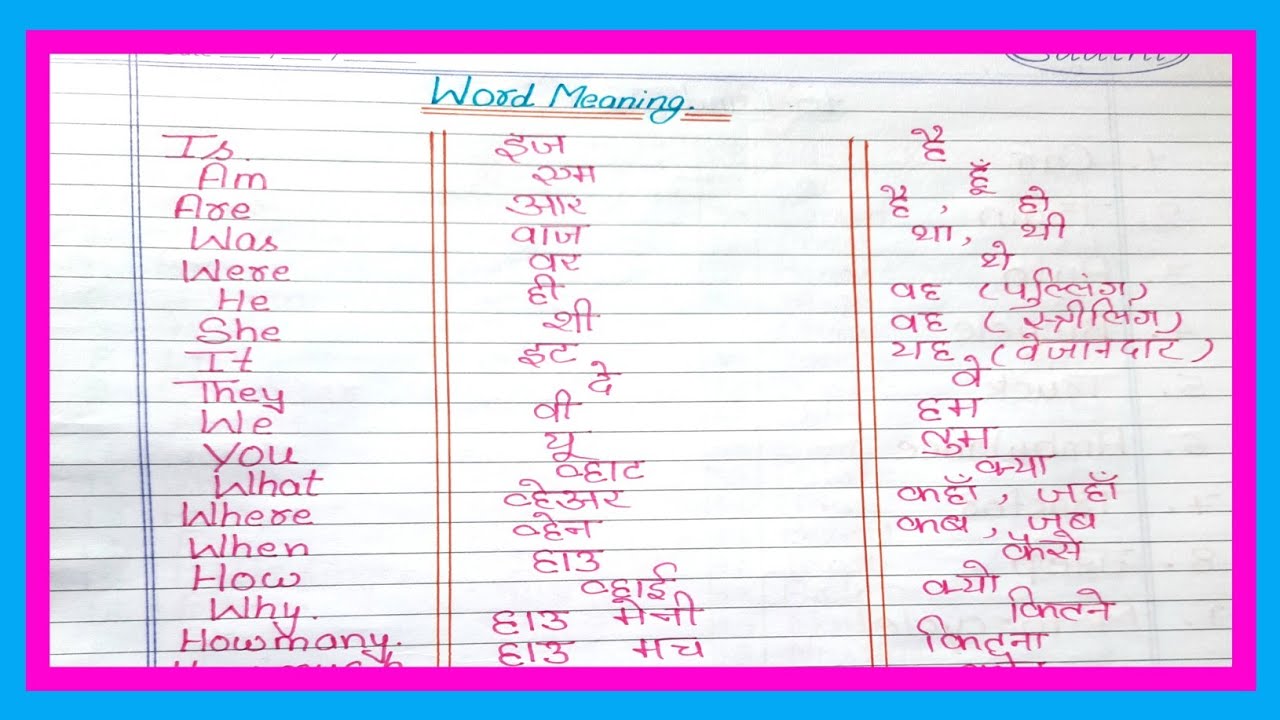 Word Meaning.
Is. इज है
Am एम हूँ
Are आर है, हो
Was वाज था, थी
Were वर थे
He ही वह (पुल्लिंग)
She शी वह (स्त्रीलिंग)
It इट यह (वेजानदार)
They दे वे
We वी हम
You यू तुम
What व्हाट क्या
Where व्हेअर कहाँ, जहाँ
When व्हेन कब, जब
How हाउ कैसे
Why. व्हाई क्यो
Howmany. हाउ मेनी कितने
हाउ मच कितना